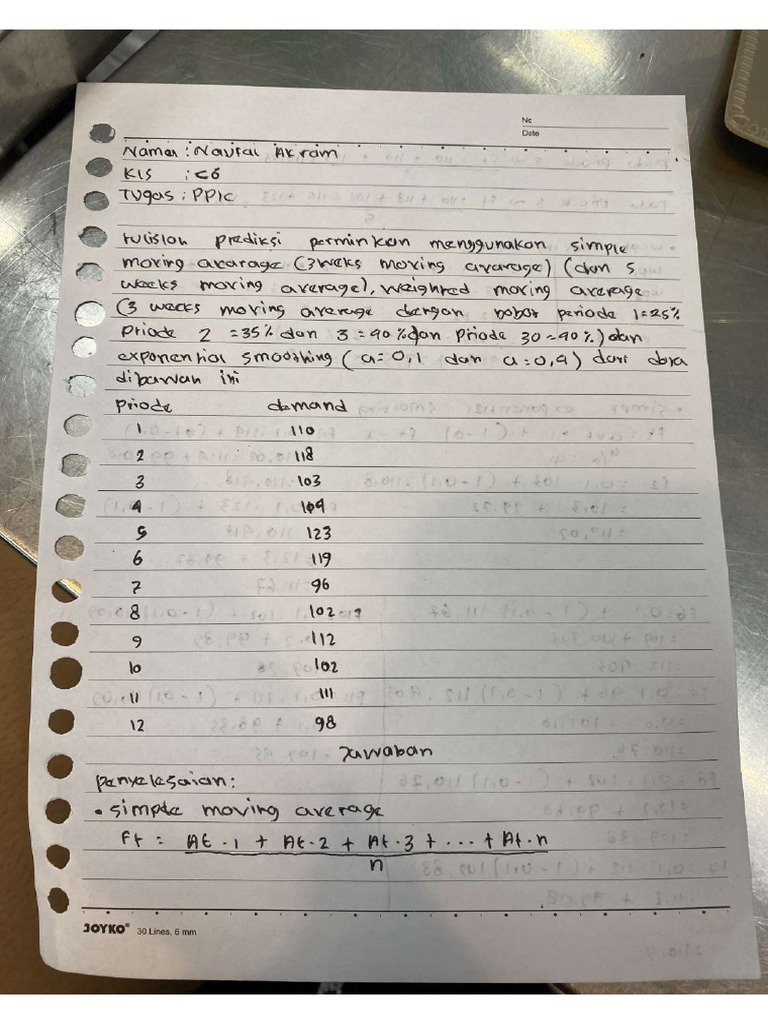 No
Date
Nama : Naufal Akram
Kls : C6
Tugas : PPIC
tulislah prediksi permintaan menggunakan simple
moving avarage (3 weks moving avarage) (dan 5
weeks moving average), weighred moving average
(3 weeks moving average dengan bobot periode 1=25%
Priode 2 =35% dan 3 =40% dan Priode 30=40%) dan
exponential smoothing (a=0,1 dan a=0,4) dari data
dibawah ini
Priode demand
1 110
2 118
3 103
4 109
5 123
6 119
7 96
8 102
9 112
10 102
11 111
12 98
Jawaban
Penyelesaian:
• simple moving average
Ft = At-1 + At-2 + At-3 + ... + At-n
n
JOYKO® 30 Lines, 6 mm